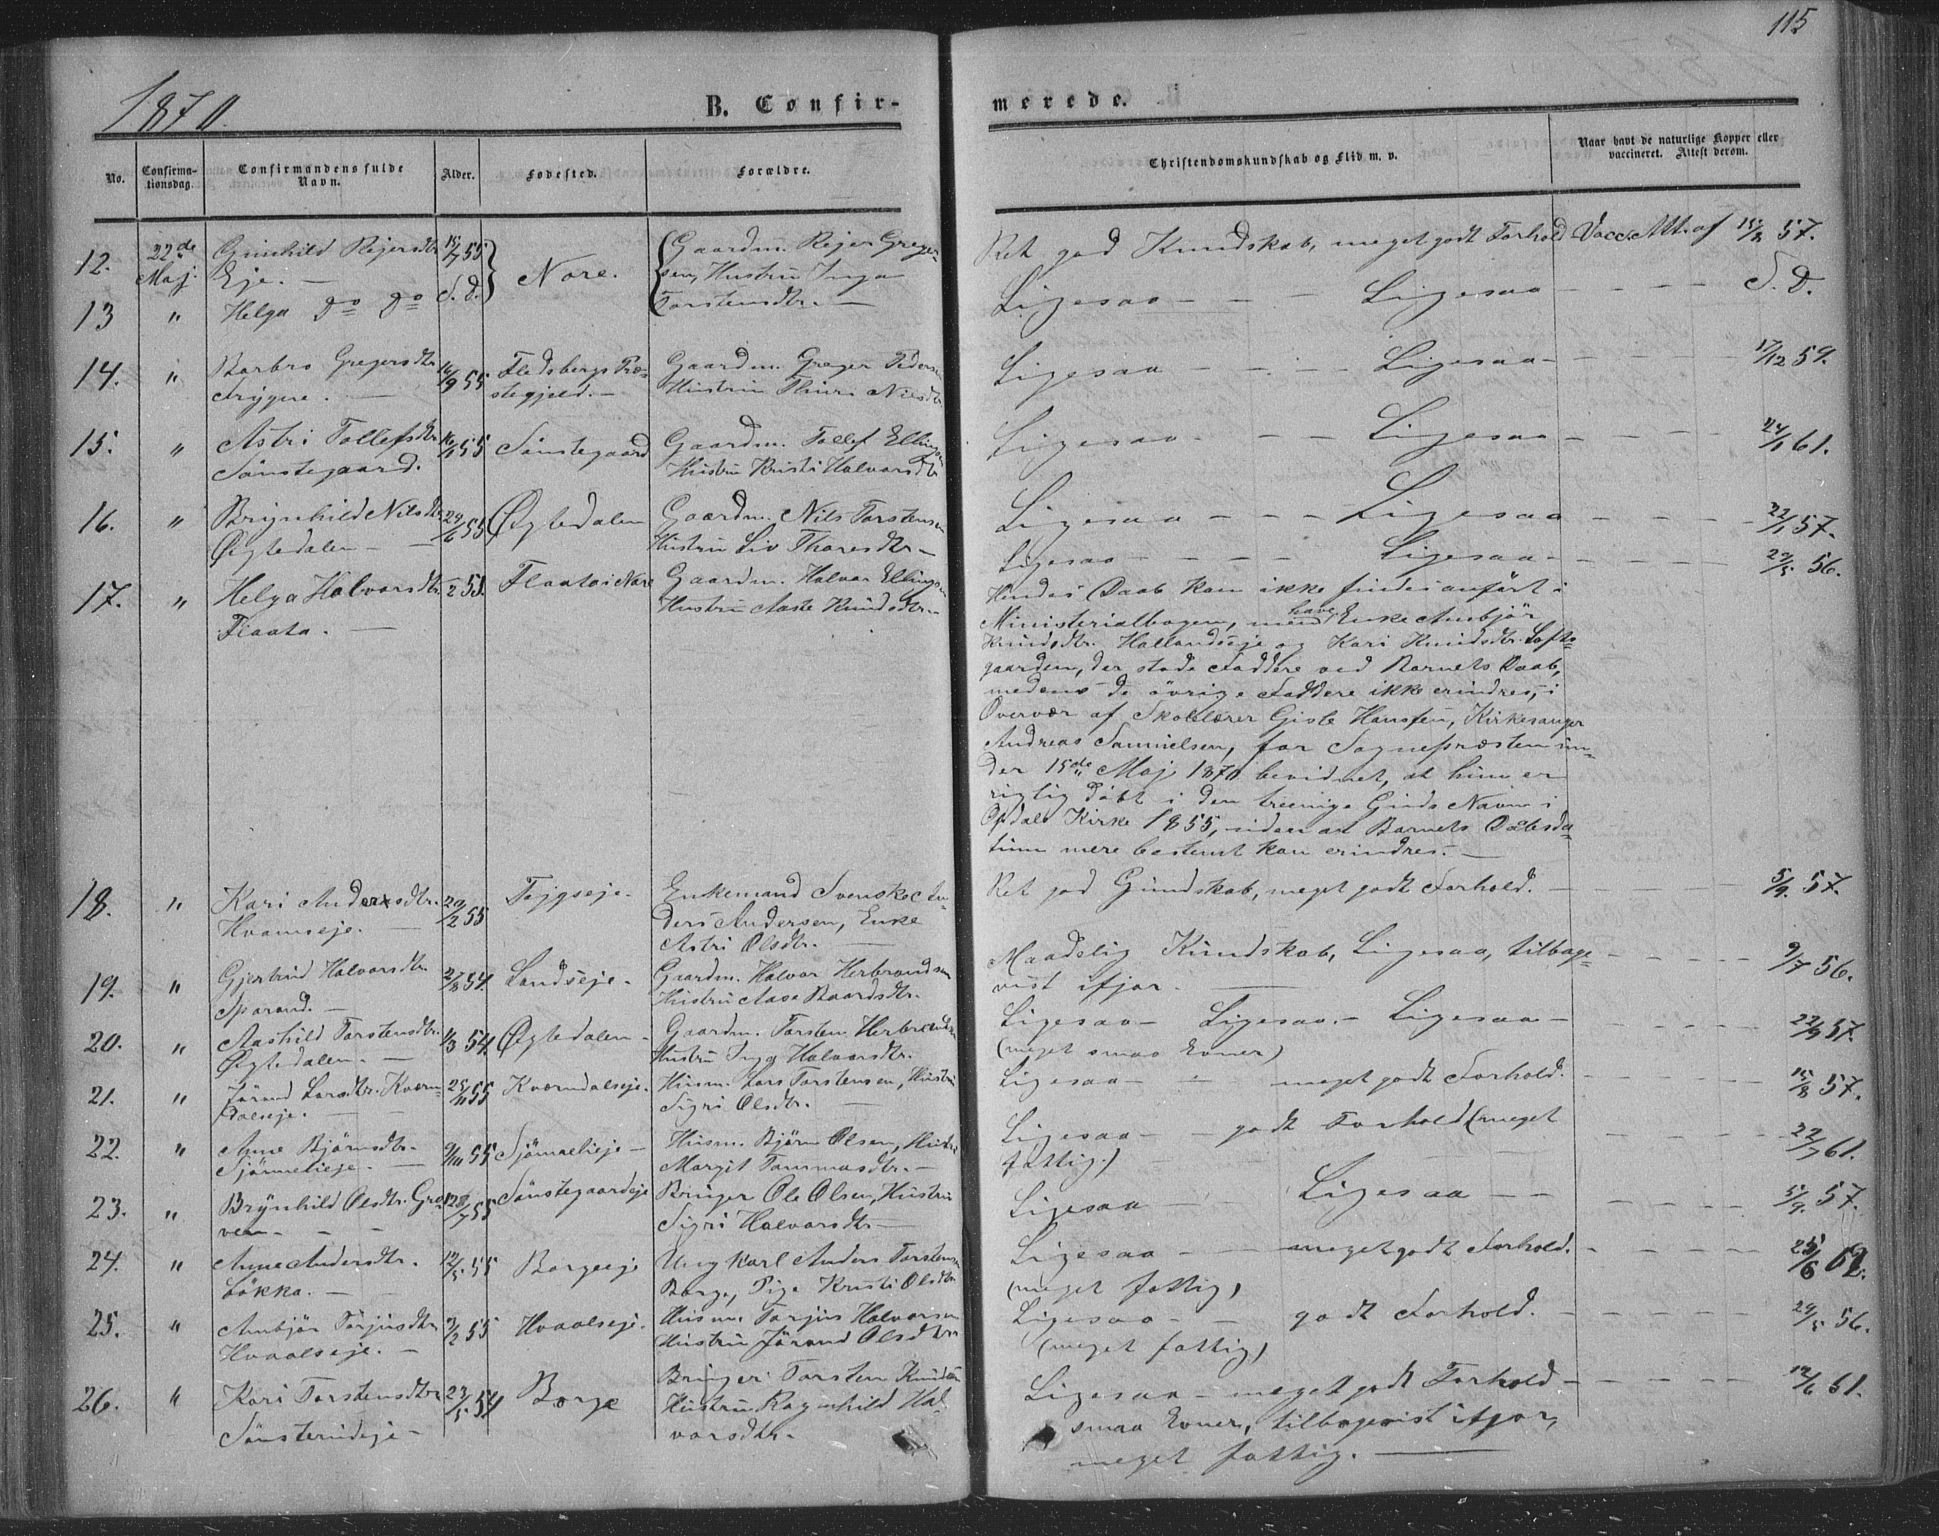 115
1870.
B. Confirmerede.
No.
Confirmationsdag.
Confirmandens fulde Navn.
Alder.
Fødested.
Forældre.
Christendomskundskab og Flid m. v.
Naar havt de naturlige Kopper eller vaccineret. Attest derom.
12. 22de Maj. Gunhild Rejersdtr. Eje. — 15/7 55 Nore. Gaardm. Rejer Gregersen, Hustru Inga Torstensdtr. — Ret god Kundskab, meget godt Forhold Vacc. Att. af 15/8 57.
13 " Helga do do S. D. Ligesaa — — — Ligesaa — — — — S. D.
14. " Barbro Gregersdtr. Frygne. — 16/9 55 Flesbergs Præstegjeld. — Gaardm. Greger Pedersen Hustru Thuri Nilsdtr. Ligesaa — — — Ligesaa — 17/12 59.
15. " Astri Tollefsdtr. Sønstegaard. 16/1 55 Sønstegaard Gaardm. Tollef Ellingsen Hustru Kristi Halvorsdtr. Ligesaa — — — Ligesaa — 24/1 61.
16. " Brynhild Nilsdtr. Øigtedalen — — 29/6 55 Øigtedalen Gaardm. Nils Torstensen Hustru Liv Thoresdtr. — Ligesaa — — — Ligesaa — — 22/1 57.
17. " Helga Halvorsdtr. Flaata. — 2 55. Flaata i Nore Gaardm. Halvor Ellingsen Hustru Aaste Knudsdtr. — Ligesaa — — — Ligesaa — — 29/5 56.
Hendes Daab kan ikke findes anført i
Ministerialbogen, men have Enke Anbjør
Knudsdtr. Hallandseje og Kari Knudsdtr. Lofts-
gaarden, der stode Faddere ved Barnets Daab,
medens de øvrige Faddere ikke erindres, i
Overvær af Skolelærer Gisle Hansen, Kirkesanger
Andreas Samuelsen, for Sognepræsten un-
der 15de Maj 1870 bevidnet, at hun er
rigtig døbt i den treenige Guds Navn i
Opdals Kirke 1855, uden at Barnets Daabsda-
tum mere bestemt kan erindres. —
18. " Kari Andersdtr. Hvamseje. — 20/2 55 Tojgseje. Enkemand Svenske Anders Andersen, Enke Astri Olsdtr. — Ret god Kundskab, meget godt Forhold. — 5/9 57.
19. " Gjertrud Halvorsdtr. Sporand. — 2/8 54. Landseje. Gaardm. Halvor Herbrandsen Hustru Aase Baardsdtr. Maadelig Kundskab, Ligesaa, tilbagevist ifjor. — 9/7 56.
20. " Aashild Torstensdtr. Øigtedalen. — 1/3 54. Øigtedalen — Gaardm. Torsten Herbrandsen Hustru Inga Halvorsdtr. Ligesaa — Ligesaa. — Ligesaa — (meget smaa Evner) 22/9 57.
21. " Jørand Larsdtr. Kværndalseje. — 25/11 55 Kværndalseje. Husm. Lars Torstensen, Hustru Sigri Olsdtr. — Ligesaa — — meget godt Forhold. 15/8 57.
22. " Anne Bjørnsdtr. Sjømnelieje. — 9/10 55 Sjømnelieje — Husm. Bjørn Olsen, Hustru Margit Tommasdtr. — Ligesaa — — godt Forhold (meget fattig.) 22/7 61.
23. " Brynhild Olsdtr. Graven — — 128/7 55 Sønstegaardeje Bruger Ole Olsen, Hustru Sigri Halvorsdtr — Ligesaa — — Ligesaa — — 5/9. 57.
24. " Anne Andersdtr. Løkka. — 12/5 55 Borgeeje Ung Karl Anders Torstensen Borge, Pige Kristi Olsdtr Ligesaa — — meget godt Forhold. (meget fattig) 25/6 62.
25. " Anbjør Torjusdtr. Hvaalseje. — 2/2 55 Hvaalseje. Husm. Torjus Halvorsen Hustru Jørand Olsdtr Ligesaa — — godt Forhold. — (meget fattig) 29/5 56.
26. " Kari Torstensdtr Sønsterudeje — 23/5 54 Borge Bruger Torsten Knudsen Hustru Ragnhild Halvorsdtr. Ligesaa — meget godt Forhold — smaa Evner, tilbagevist ifjor, meget fattig. — 12/6 61.